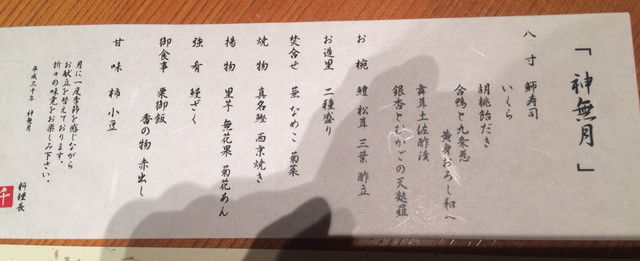 「神無月」
八寸 鰤寿司
いくら
胡桃飴だき
合鴨と九条葱
黄身おろし和へ
舞茸土佐酢漬
銀杏とむかごの天麩羅
お椀 鱧 松茸 三葉 酢立
お造里 二種盛り
焚合せ 蕪 なめこ 菊菜
焼物 真名鰹 西京焼き
揚物 里芋 無花果 菊花あん
強肴 鰻ざく
御食事 栗御飯
香の物 赤出し
甘味 柿 小豆
月に一度季節を感じながら
お献立を替えております。
折々の味覚をお楽しみ下さい。
平成三十年 神無月
料理長
千